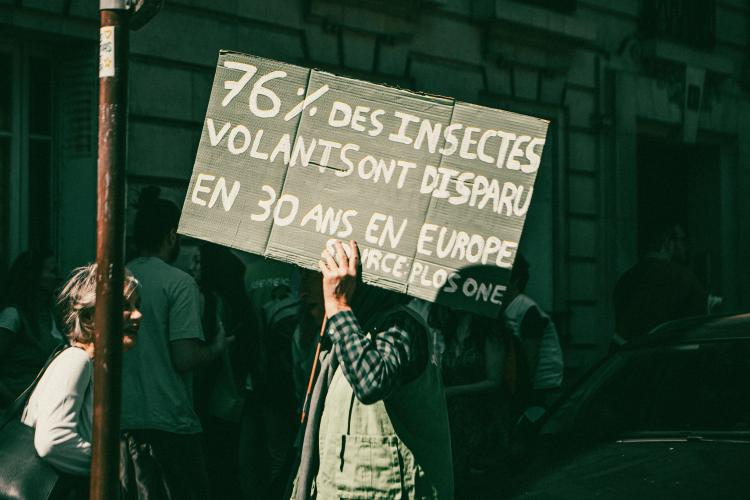 76% DES INSECTES
VOLANTS ONT DISPARU
EN 30 ANS EN EUROPE
PLOS ONE